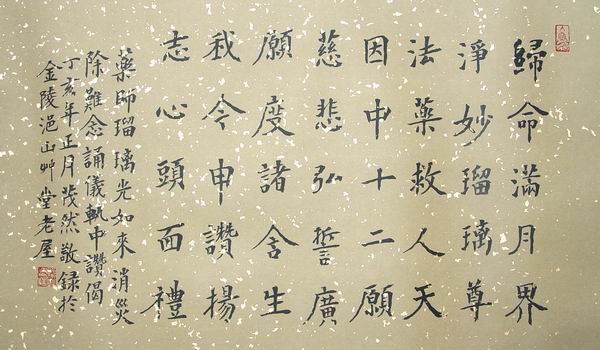 歸命滿月界
淨妙瑠璃尊
法藥救人天
因中十二願
慈悲弘誓廣
願度諸含生
我今申讚揚
志心頭面禮
藥師瑠璃光如來消災
除難念誦儀軌中讚偈
丁亥年正月茂然敬録於
金陵浥山艸堂老屋